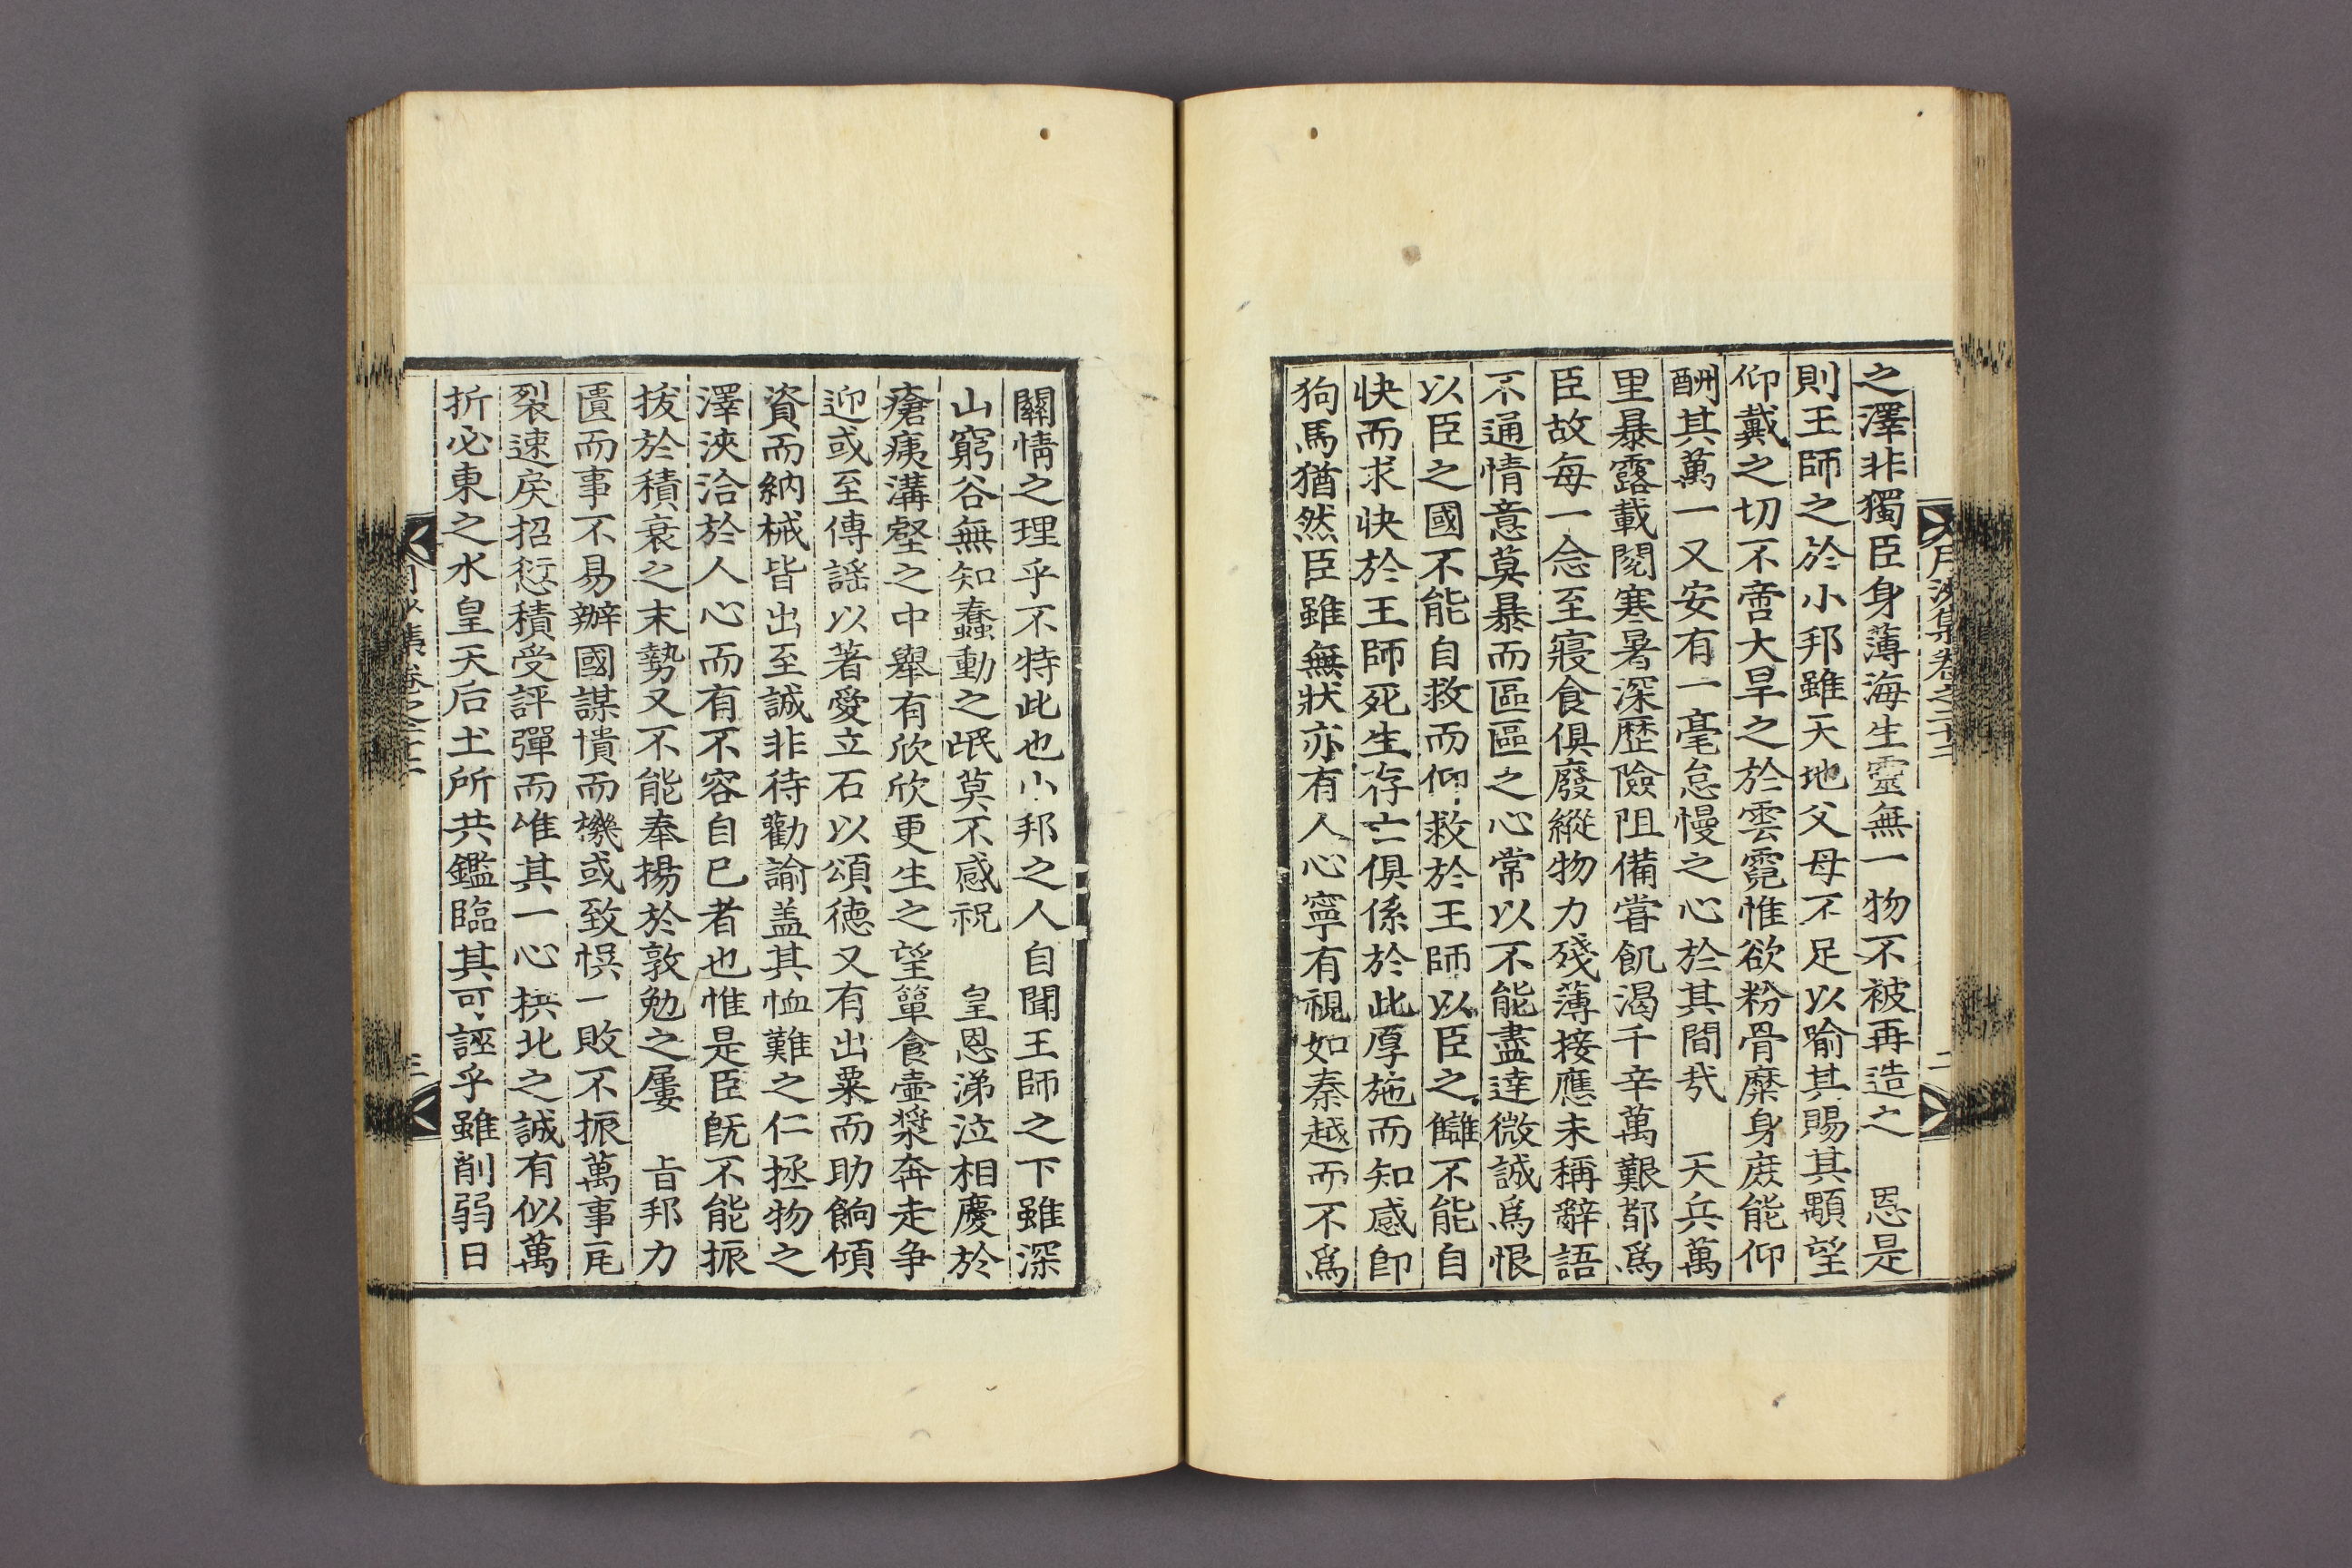 月沙集卷之二十二 二
之澤非獨臣身薄海生靈無一物不被再造之 恩是
則王師之於小邦雖天地父母不足以喻其賜其顒望
仰戴之切不啻大旱之於雲霓惟欲粉骨糜身庶能仰
酬其萬一又安有一毫怠慢之心於其間㦲 天兵萬
里暴露載閱寒暑深歷險阻備嘗飢渴千辛萬艱都爲
臣故每一念至寢食俱廢縱物力殘薄接應未稱辭語
不通情意莫暴而區區之心常以不能盡達微誠爲恨
以臣之國不能自救而仰救於王師以臣之讎不能自
快而求快於王師死生存亡俱係於此厚施而知感卽
狗馬猶然臣雖無狀亦有人心寧有視如秦越而不爲
關情之理乎不特此也小邦之人自聞王師之下雖深
山窮谷無知蠢動之氓莫不感祝 皇恩涕泣相慶於
瘡痍溝壑之中舉有欣欣更生之望簞食壺漿奔走争
迎或至傳謡以著愛立石以頌德又有出粟而助餉傾
資而納械皆出至誠非待勸諭盖其恤難之仁拯物之
澤浹洽於人心而有不容自已者也惟是臣旣不能振
拔於積衰之末勢又不能奉揚於敦勉之屢 旨邦力
匱而事不易辦國謀憒而機或致悞一敗不振萬事瓦
裂速戾招愆積受評彈而惟其一心拱北之誠有似萬
折必東之水皇天后土所共鑑臨其可誣乎雖削弱日
三